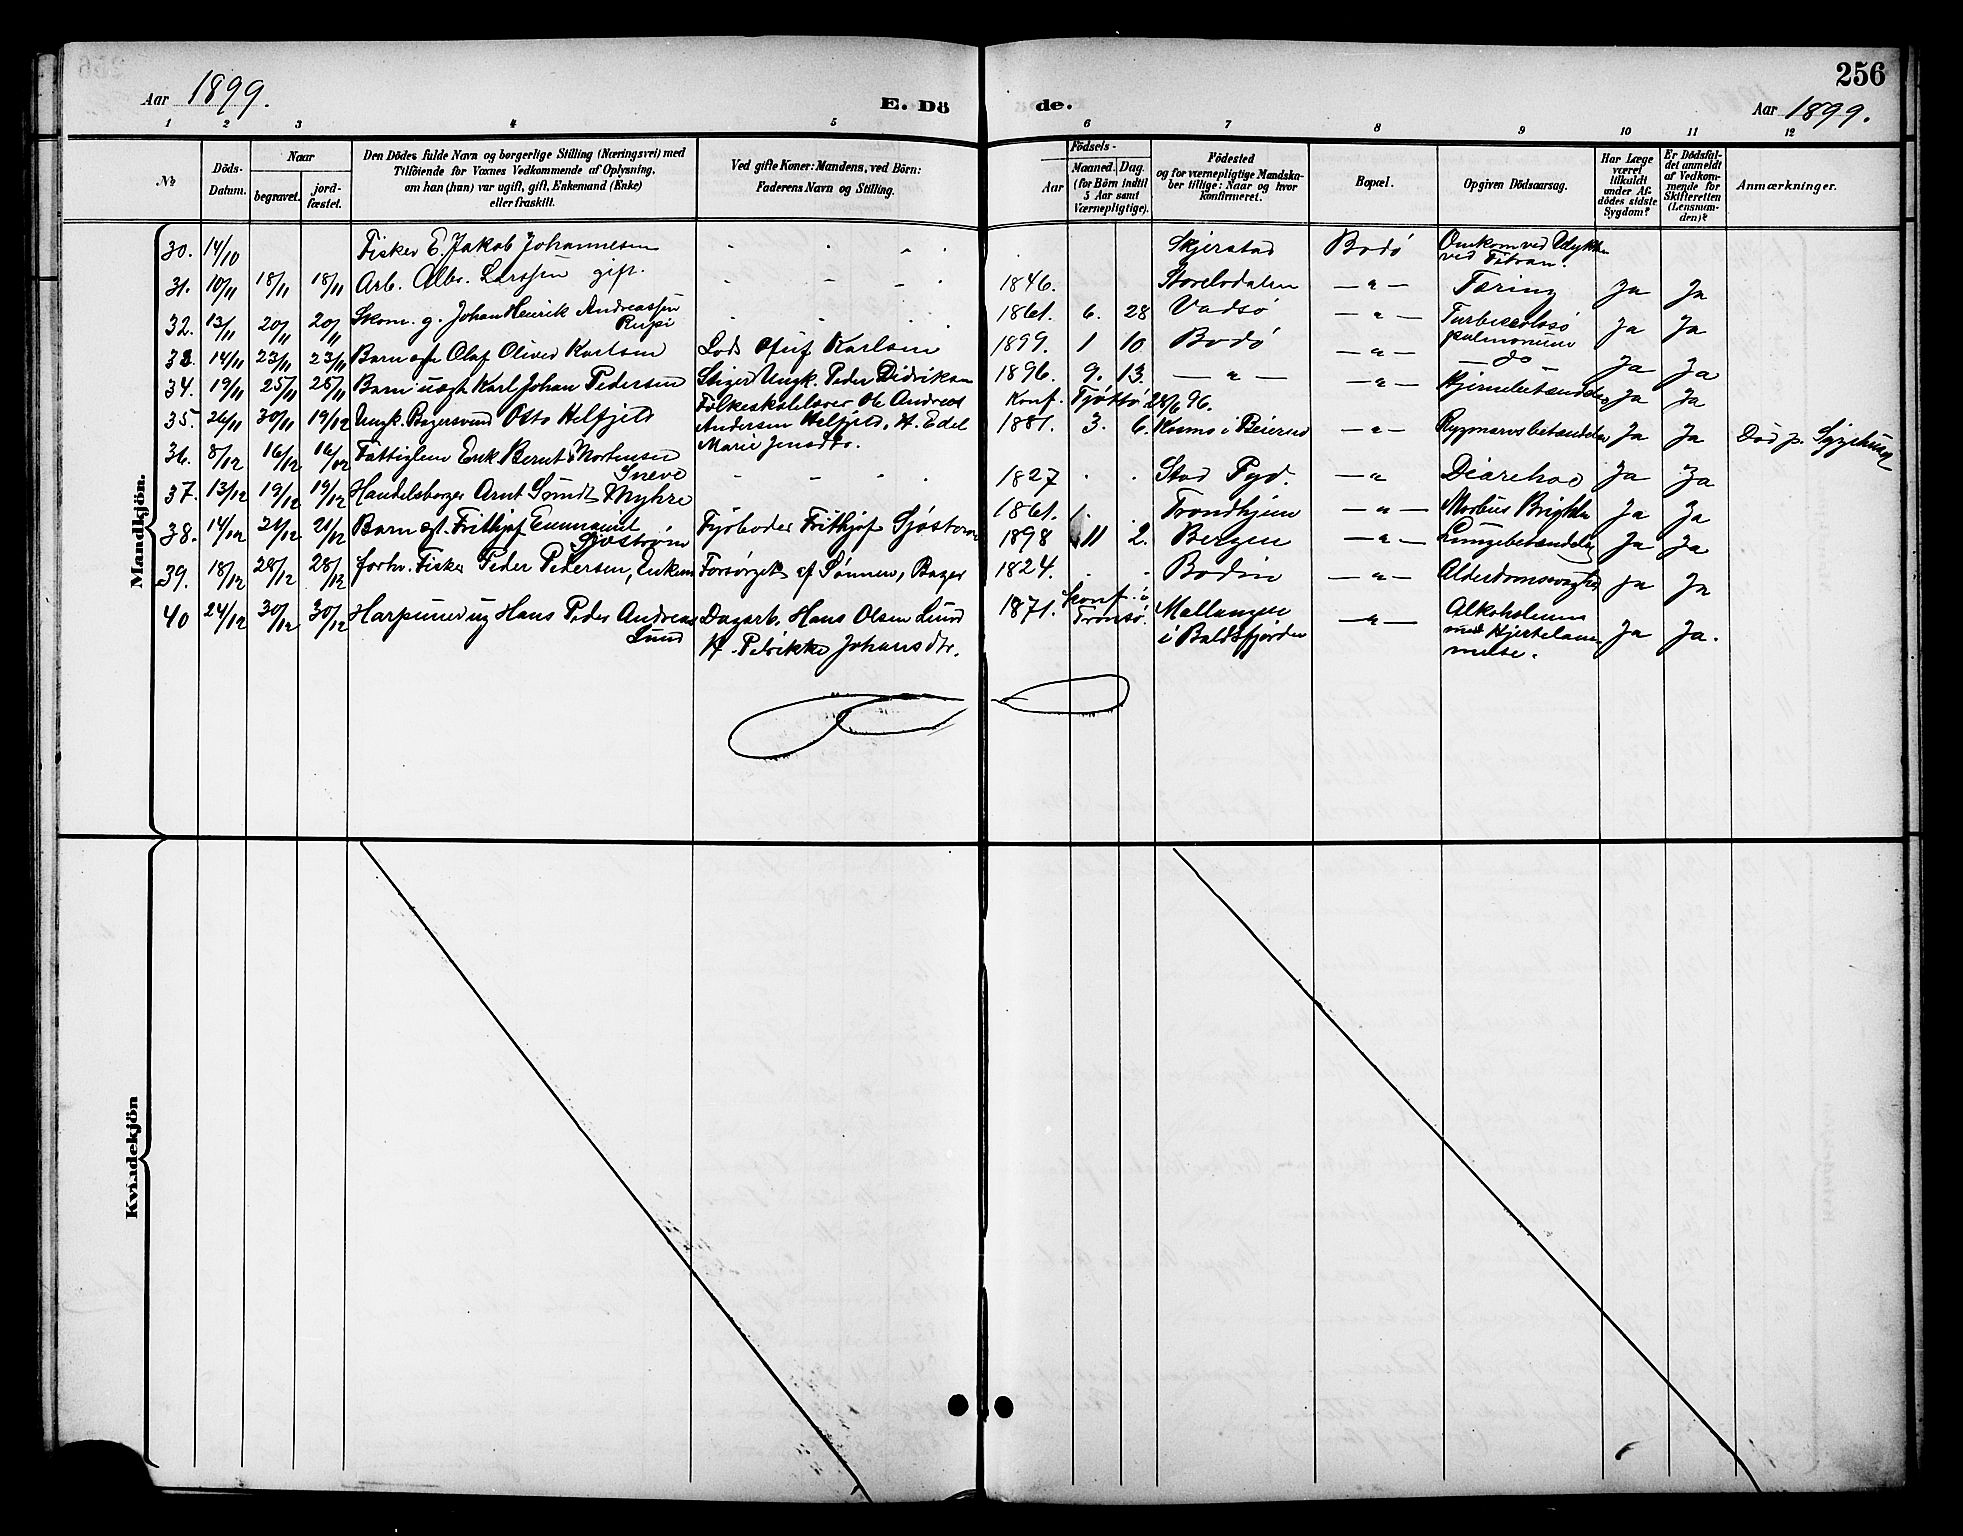 256
Aar 1899.
E. Dö de.
Aar 1899.
1 2 3 4 5 6 7 8 9 10 11 12
№
Döds-Datum.
Naar
begravet.
jord-fæstet.
Den Dödes fulde Navn og borgerlige Stilling (Næringsvei) med
Tilföiende for Voxnes Vedkommende af Oplysning,
om han (hun) var ugift, gift, Enkemand (Enke)
eller fraskilt.
Ved gifte Koner: Mandens, ved Börn:
Faderens Navn og Stilling.
Födsels-
Aar
Maaned. Dag.
(for Börn indtil
5 Aar samt
Værnepligtige).
Födested
og for værnepligtige Mandska-
ber tillige: Naar og hvor
konfirmeret.
Bopæl.
Opgiven Dödsaarsag.
Har Læge
været
tilkaldt
under Af-
dödes sidste
Sygdom?
Er Dödsfal-
det anmeldt
af Vedkom-
mende for
Skifteretten
(Lensman-
den)?
Anmærkninger.
Mandkjön.
30. 14/10 Fisker E. Jakob Johannesen - - - - Skjerstad Bodö Omkom ved
ved Titran.
31. 10/11 18/11 18/11 Arb. Albr. Larssen gift. - - - - 1846. -"- Tæring Ja Ja
32. 13/11 20/11 20/11 Skom. g. Johan Henrik Andreassen 1861. 6. 28 Vadsö -"- Ja Ja
pulmonum
33. 14/11 23/11 23/11 Barn Olaf Oliver Karlsen Lods Karlsen 1899. 1 10 Bodö -"- - do - Ja Ja
34. 19/11 25/11 25/11 Barn uægt Karl Johan Pedersen Ungk. Peder Didriksen 1896. 9. 13. -"- -"- Hjernebetændelse Ja Ja
35. 26/11 30/11 19/12 Ungk. Bagersvend Otto Kelfjeld Folkeskolelærer Ole Andreas
Andersen Kelfjeld, H. Edel
Marie Jensdtr.
Konf. Tjøttö 96.
1881. 3. 6. i Beieren -"- Rygmarvsbetændelse Ja Ja Död p. Sygehuset
36. 8/12 16/12 16/12 Fattiglem Enk. Bernt Mortensen
Sneve - - - - 1827 . . Stod Pgd. -"- Ja Ja
37. 13/12 19/12 19/12 Handelsborger Arnt Myhre 1861. Trondhjem -"- Morbus Brightii Ja Ja
38. 14/12 21/12 21/12 Barn Frithjof Emmanuel
Sjöström Frithjof Sjöström 1898 11 2. Bergen -"- Lungebetændelse Ja Ja
39. 18/12 28/12 28/12 forhv. Fisker Peder Pedersen, Enkem. Forsörget af Sönnen, Bager 1824. . . Bodin -"- Alderdomssvaghed Ja Ja
40 24/12 30/12 30/12 Harpuner ug Hans Peder Andreas
Lund
Dagarb. Hans Olsen Lund
H. Johansdtr.
1871. Konf. i
Tromsö.
Mallangen
i Baldsfjorden
-"- Alkoholisme
med Hjertelam-
melse. Ja Ja.
Kvindekjön